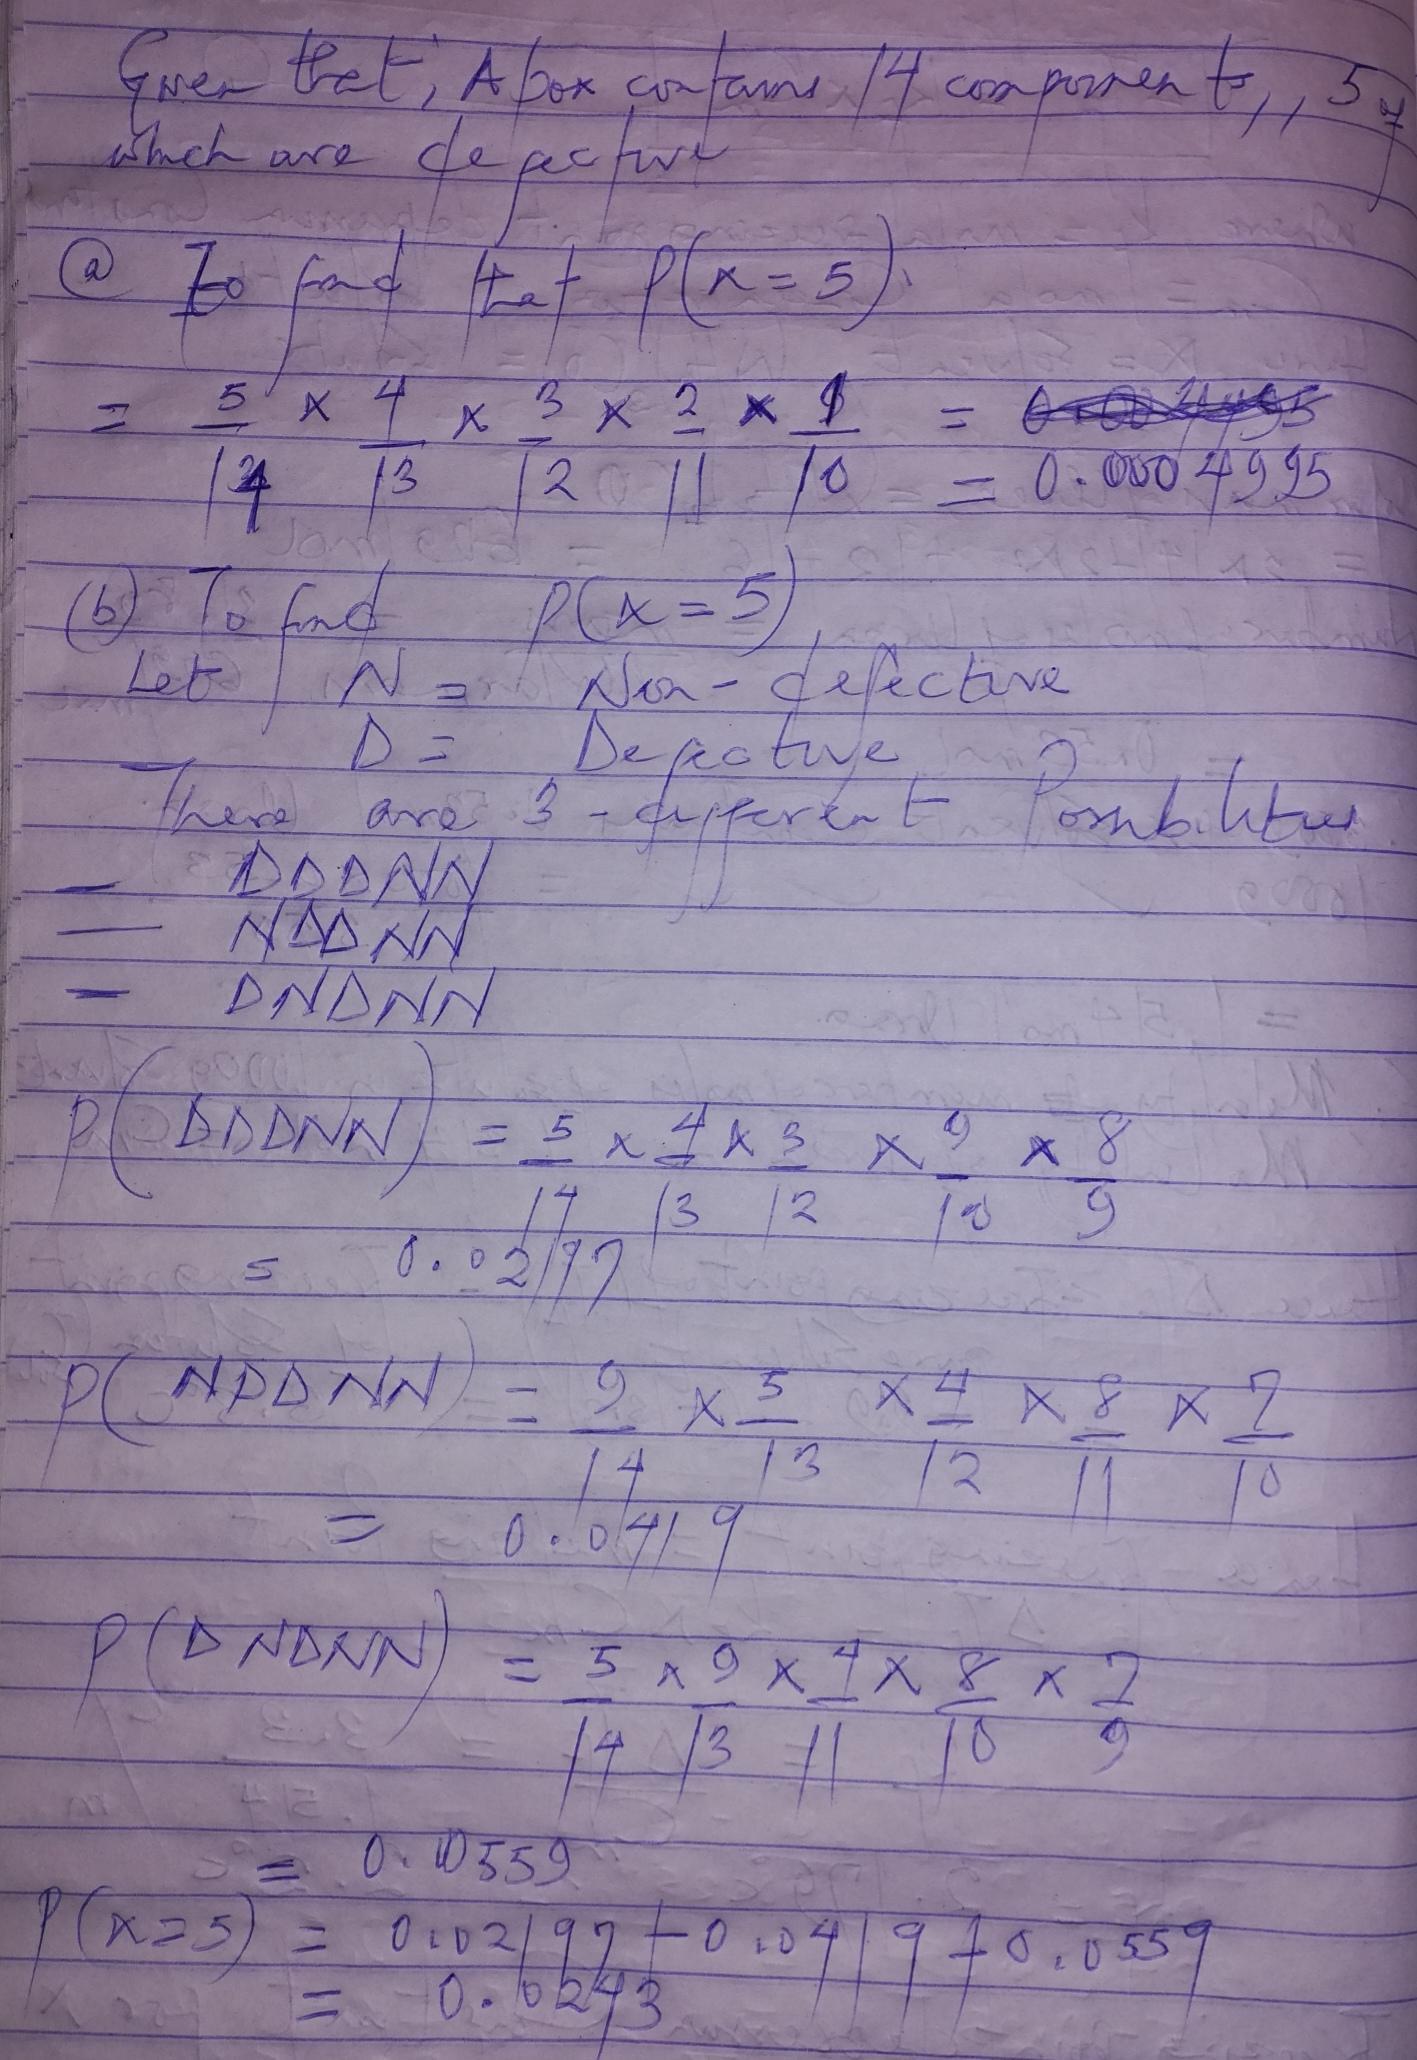 Given that, A box contains 14 components,, 5 of
which are defective
(a) To find that P(x=5).
= 5/14 × 4/13 × 3/12 × 2/11 × 1/10 =
= 0.0004995
(b) To find P(x=5)
Let N = Non-defective
D = Defective
There are 3-different Possibilities
— DDDNN
— NDDNN
— DNDNN
P(DDDNN) = 5/14 × 4/13 × 3/12 × 9/10 × 8/9
= 0.02197
P(NDDNN) = 9/14 × 5/13 × 4/12 × 8/11 × 7/10
= 0.0419
P(DNDNN) = 5/14 × 9/13 × 4/11 × 8/10 × 7/9
= 0.0559
P(x=5) = 0.02197 + 0.0419 + 0.0559
= 0.0243